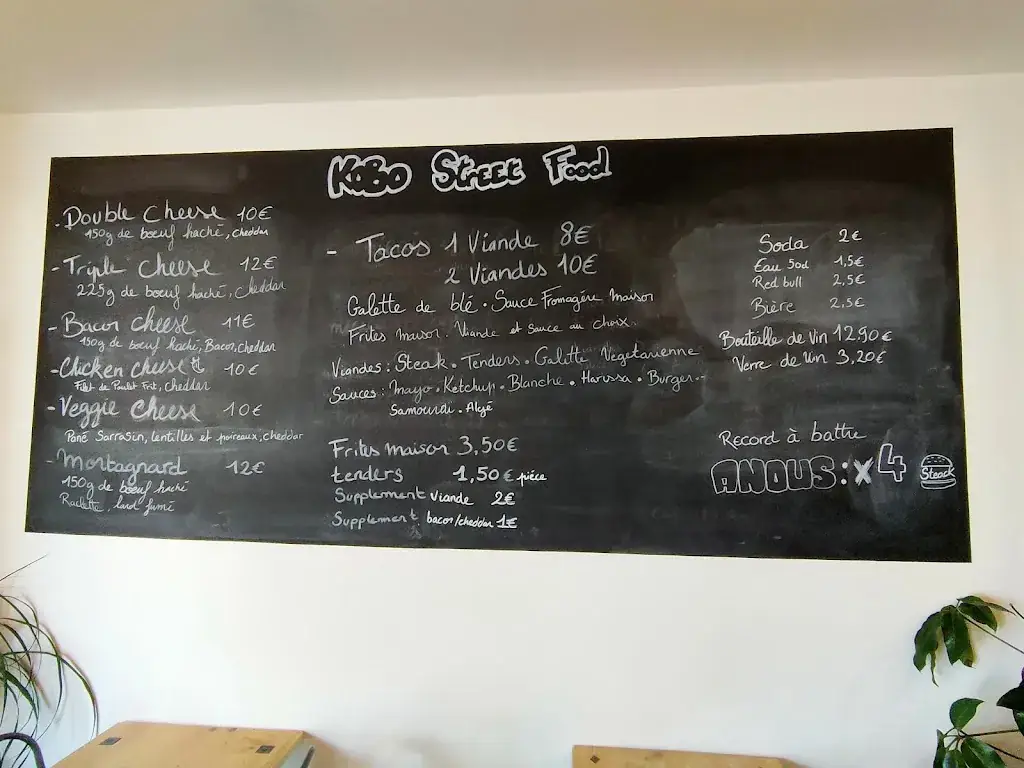 KoBo Street Food
- Double Cheese 10€
150g de bœuf haché, cheddar
- Triple Cheese 12€
225g de bœuf haché, cheddar
- Bacon cheese 11€
150g de bœuf haché, Bacon, cheddar
- Chicken cheese 10€
Filet de Poulet Frit, cheddar
- Veggie Cheese 10€
Pané Sarrasin, lentilles et poireaux, cheddar
- Montagnard 12€
150g de bœuf haché
Raclette, lard fumé
- Tacos 1 Viande 8€
2 Viandes 10€
Galette de blé • Sauce Fromagère maison
Frites maison • Viande et sauce au choix.
Viandes : Steak • Tenders • Galette Vegetarienne
Sauces : Mayo • Ketchup • Blanche • Harissa • Burger •
Samouraï • Algé
Frites maison 3,50€
tenders 1,50€ pièce
Supplement viande 2€
Supplement bacon/cheddar 1€
Soda 2€
Eau 50cl 1,5€
Red bull 2,5€
Bière 2,5€
Bouteille de Vin 12.90€
Verre de Vin 3,20€
Record à battre
ANOUS : x4
Steack